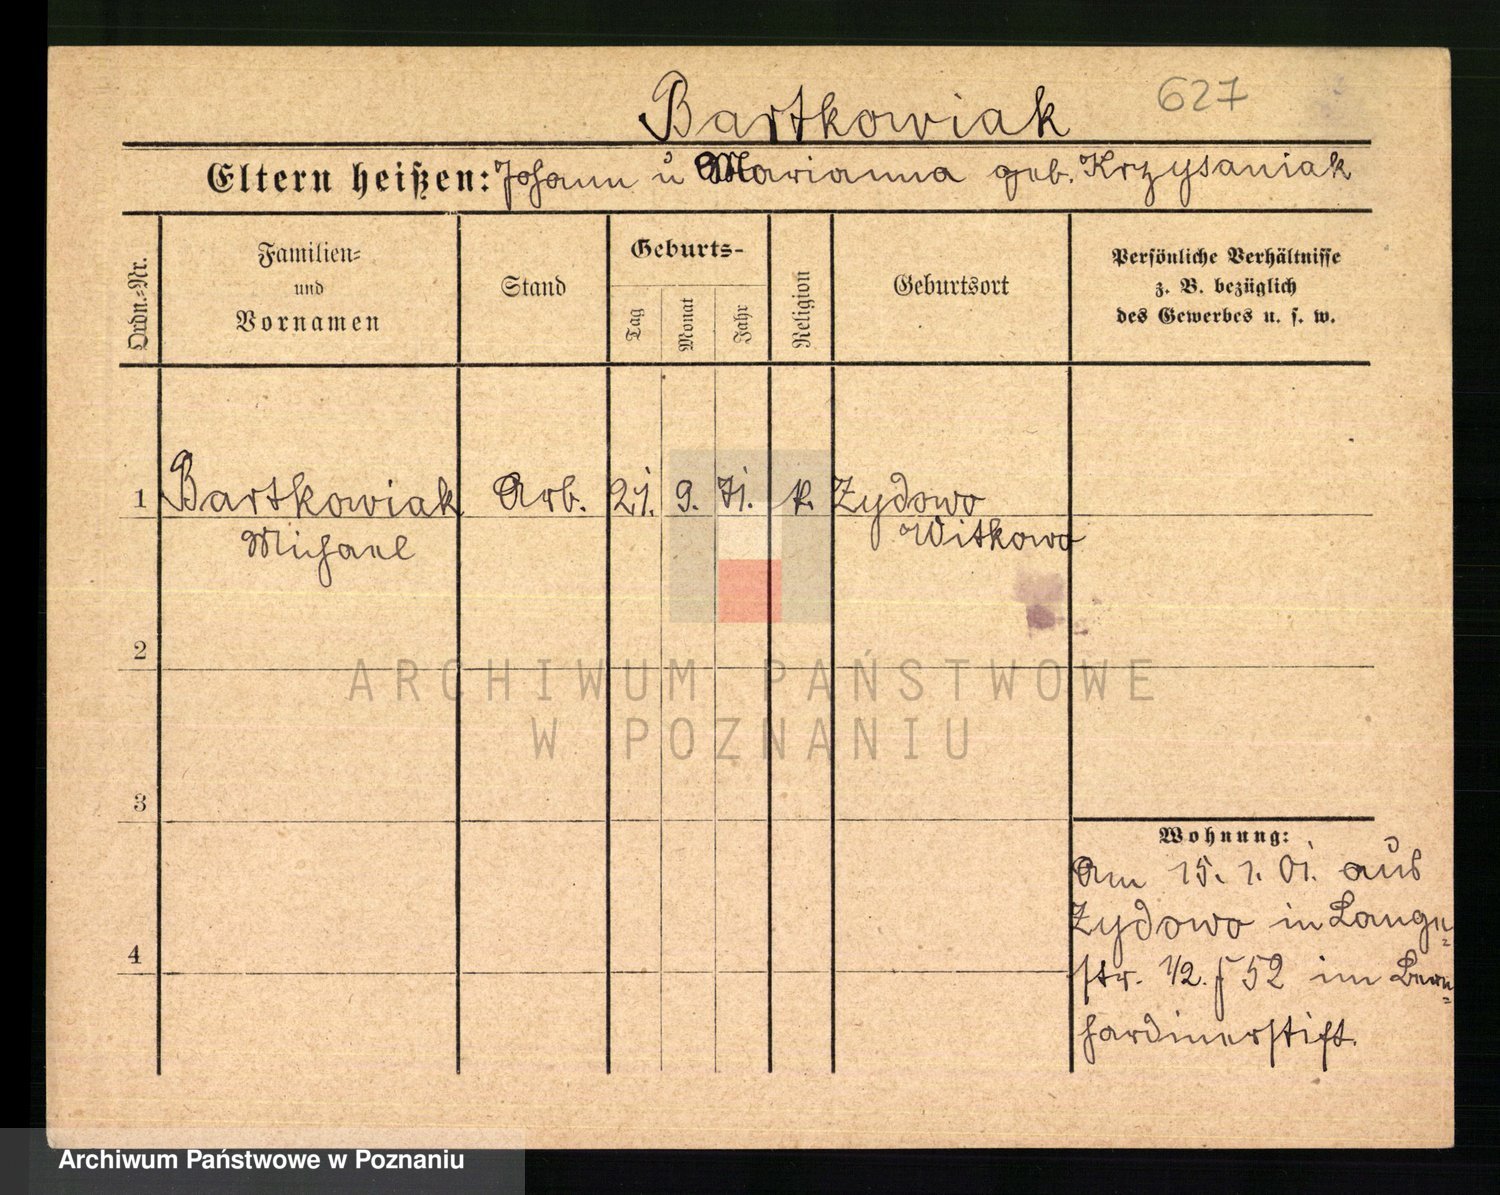 Bartkowiak 627
Eltern heißen: Johann u Marianna geb. Krzysaniak
Ordn.=Nr.
Familien=
und
Vornamen
Stand
Geburts-
Tag
Monat
Jahr
Religion
Geburtsort
Persönliche Verhältnisse
z. B. bezüglich
des Gewerbes u. s. w.
1 Bartkowiak Arb. 21. 9. 71. k. Zydowo
Michael Witkowo
2
3
4
Wohnung:
Am 15. 1. 01. aus
Zydowo in Lange=
str. 1/2. f 52 im Bern=
hardinerstift.
ARCHIWUM PAŃSTWOWE
W POZNANIU
Archiwum Państwowe w Poznaniu